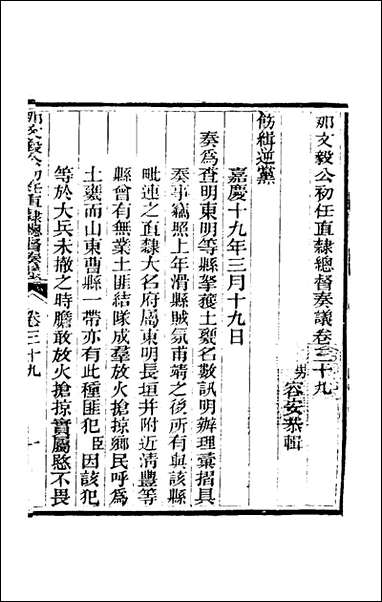 那文毅公初任直隸總督奏議卷三十九
男容安恭輯
飭緝逆黨
嘉慶十九年三月十九日
奏爲查明東明等縣拏獲土夔名數訊明辦理彙摺具
奏事竊照上年滑縣賊氛甫靖之後所有與該縣
毗連之直隸大名府屬東明長垣并附近清豐等
縣會有無業土匪結隊成羣放火搶掠鄉民呼爲
土夔而山東曹縣一帶亦有此種匪犯臣因該犯
等於大兵未撤之時膽敢放火搶掠實屬愍不畏
那文毅公初任直隸總督奏議
卷三十九
一